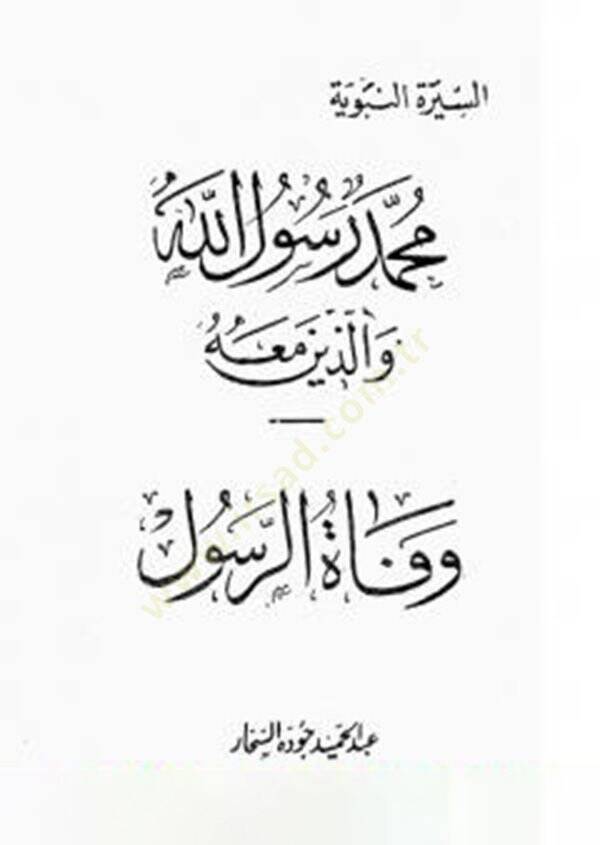 السيرة النبوية
محمد رسول الله
والذين معه
وفاة الرسول
عبد الحميد جودة السحار